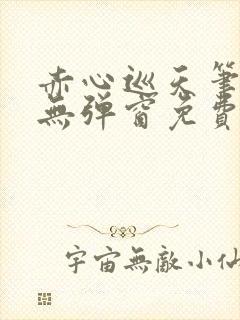 赤心巡天筆
無弹窗免費
宇宙無敵小仙